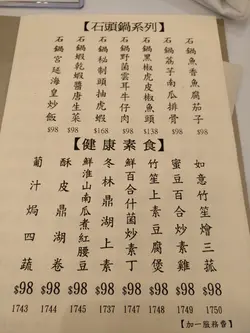 【石頭鍋系列】
石鍋魚香魚腐茄子
石鍋荔芋南瓜排骨
石鍋黑椒虎皮椒魚頭
石鍋野菌雲耳牛仔肉
石鍋秘制頭抽虎蝦
石鍋蝦乾蝦醬唐生菜
石鍋宮廷海皇炒飯
$98 $98 $168 $98 $138 $98 $98
【健康素食】
如意竹笙燴三菰
蜜豆百合炒素雞
竹笙上素豆腐煲
鮮百合什菌炒素丁
冬林鼎湖上素
鮮淮山南瓜煮紅腰豆
酥皮鼎湖卷
葡汁焗四蔬
$98 $98 $98 $98 $98 $98 $98 $98
1743 1744 1745 1737 1747 1748 1749 1750
【加一服務費】